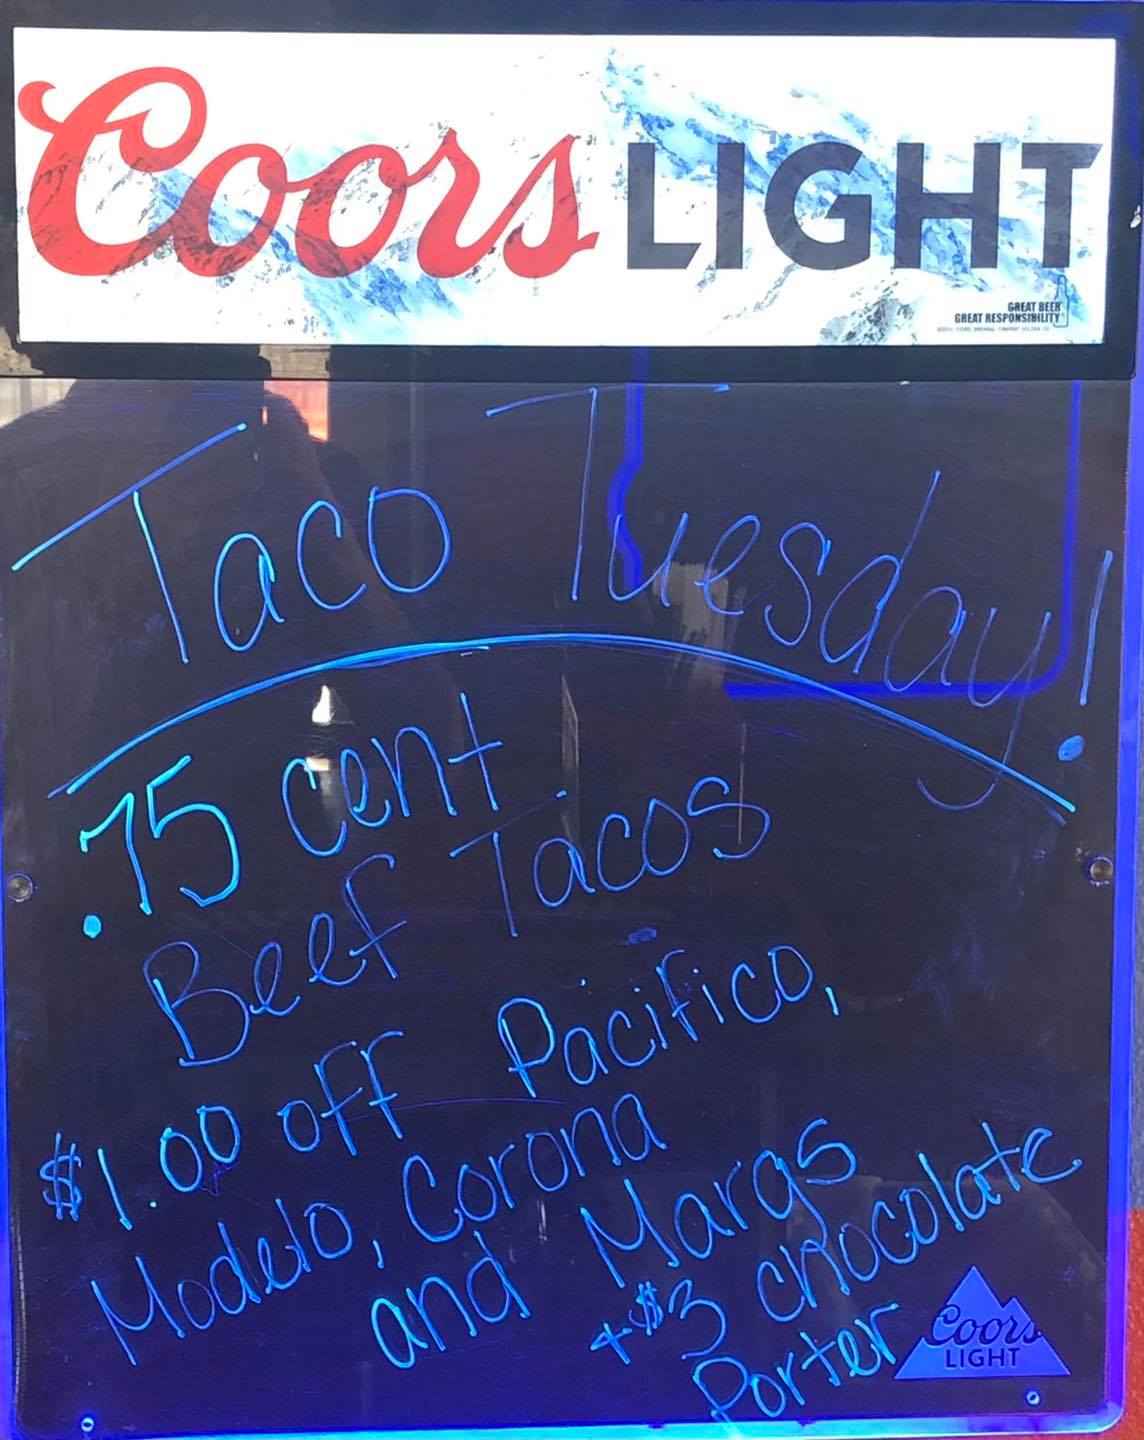 Coors LIGHT
GREAT BEER
GREAT RESPONSIBILITY
Taco Tuesday!
.75 cent
Beef Tacos
$1.00 off Pacifico,
Modelo, Corona
and Margs
+ $3 chocolate
Porter
Coors
LIGHT